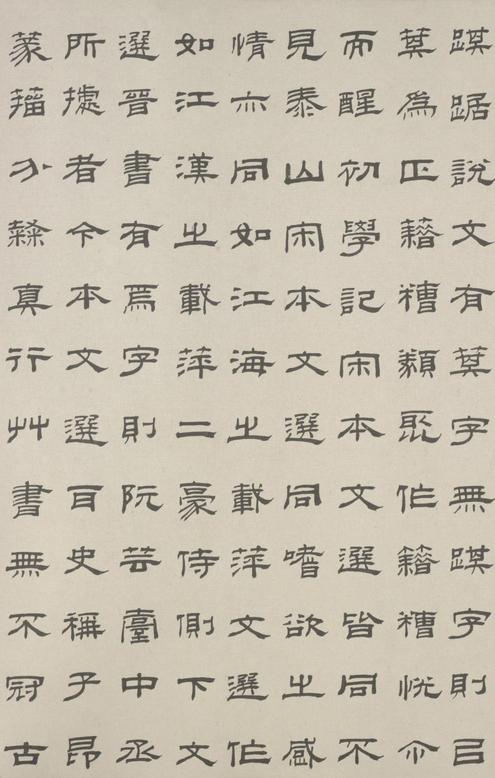 踑踞說文有萁字無踑字則㠯
萁為正藉糟類聚作籍糟怳尒
而醒初學記宋本文選皆同不
見泰山宋本文選同嗜欲之感
情亦同如江海之載萍文選作
如江漢之載萍二豪侍側下文
選晉書有焉字則阮芸臺中丞
所據者今本文選耳史稱子昂
篆籀分隸真行艸書無不冠古